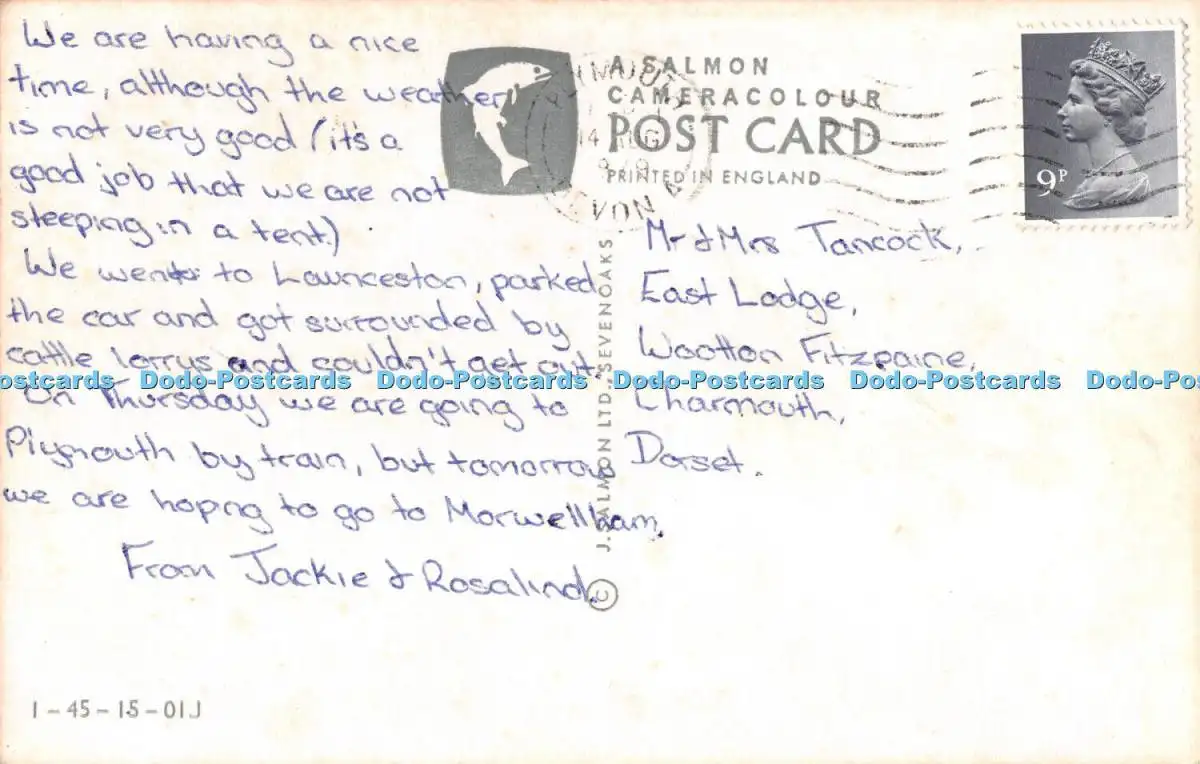 We are having a nice
time, although the weather
is not very good (it's a
good job that we are not
sleeping in a tent.)
We went to Launceston, parked
the car and got surrounded by
cattle lorrys and couldn't get out.
On Thursday we are going to
Plymouth by train, but tomorrow
we are hopng to go to Morwellham.
From Jackie & Rosalind.
1-45-15-01J
A SALMON
CAMERACOLOUR
POST CARD
PRINTED IN ENGLAND
14 AUG
VON
9P
J. SALMON LTD., SEVENOAKS ©
Mr & Mrs Tancock,
East Lodge,
Wootton Fitzpaine,
Charmouth,
Dorset.
Dodo-Postcards Dodo-Postcards Dodo-Postcards Dodo-Postcards Dodo-Postcards